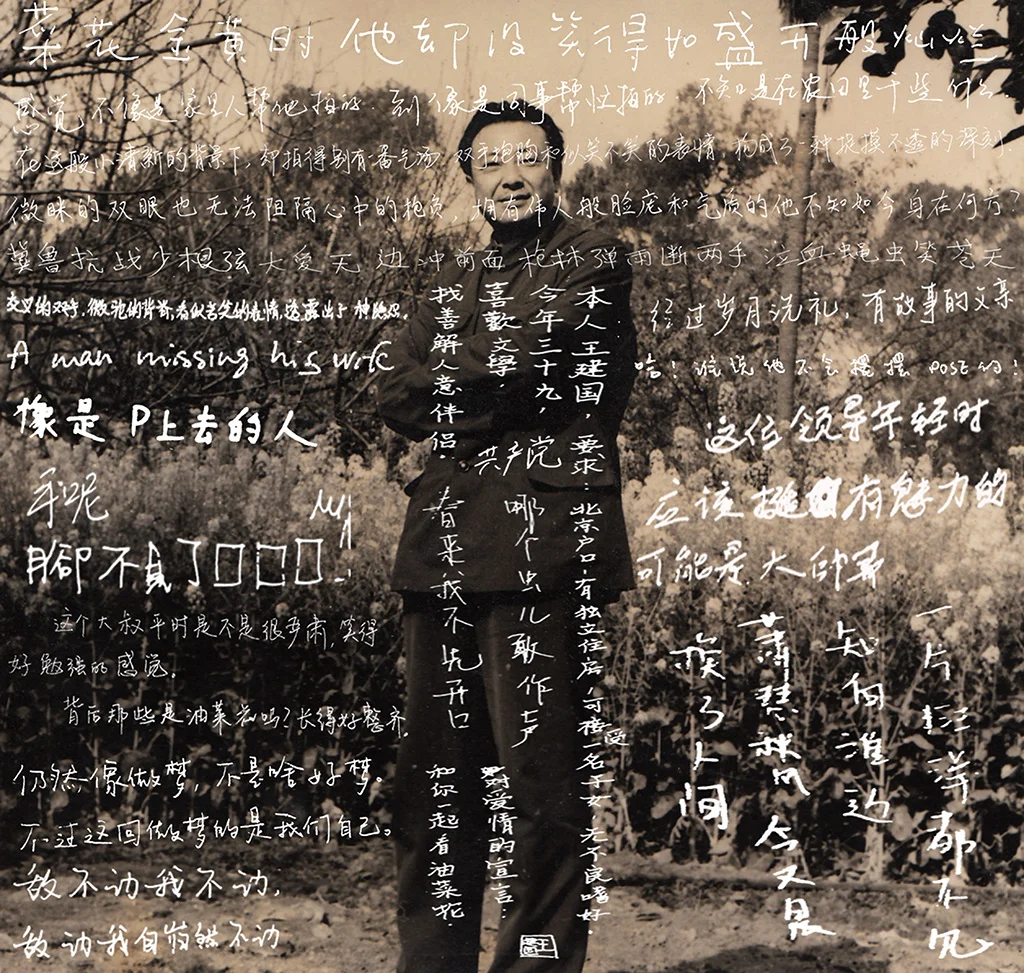 菜花金黄时他却没笑得如盛开般
感觉不像是家里人帮他拍的.到像是同事帮忙拍的 不知是在农田里干些什么
在这般小清新的背景下,却拍得别有一番气场.双手抱胸和似笑不笑的表情,构成了一种捉摸不透的深刻.
微眯的双眼也无法阻隔心中的抱负,拥有伟人般脸庞和气质的他不知如今身在何方?
冀鲁抗战少根弦大爱无边冲前面枪林弹雨断两手泣血蝇虫笑苍天
交叉的双手,微驼的背脊,看似含笑的表情,透露出了
A man missing his wife
像是P上去的人
手呢
脚不見了口口口
这个大叔平时是不是很严肃,笑得
好勉强的感觉。
背后那些是油菜花吗?长得好整齐.
仍然像做梦,不是啥好梦。
不过这回做梦的是我们自己。
敌不动我不动.
敌动我自岿然不动
经过岁月洗礼,有故事的父亲
哈!谁说他不会摆摆POSE的!
这位领导年轻时
应该挺有魅力的
可能是大帅哥
本人王建国,要求:北京户口,有独立住房,可接受一名子女,无不良嗜好.
今年三十九,
喜歡文學,
找善解人意伴侣.
共产党
春来我不先开口
哪个虫儿敢作声
對爱情的宣言:
和你一起看油菜花.
一片汪洋都不见
知向谁边
萧瑟秋风今又是
换了人间